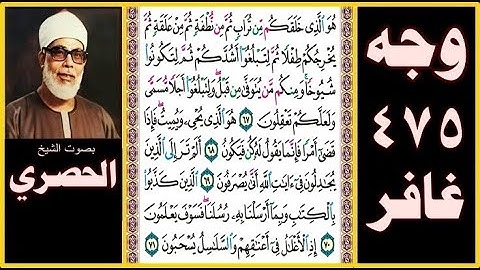 هُوَ الَّذِى خَلَقَكُم مِّن تُرَابٍ ثُمَّ مِن نُّطْفَةٍ ثُمَّ مِنْ عَلَقَةٍ ثُمَّ
يُخْرِجُكُمْ طِفْلًا ثُمَّ لِتَبْلُغُوٓا۟ أَشُدَّكُمْ ثُمَّ لِتَكُونُوا۟
شُيُوخًا ۚ وَمِنكُم مَّن يُتَوَفَّىٰ مِن قَبْلُ ۖ وَلِتَبْلُغُوٓا۟ أَجَلًا مُّسَمًّى
وَلَعَلَّكُمْ تَعْقِلُونَ ٦٧ هُوَ الَّذِى يُحْىِۦ وَيُمِيتُ ۖ فَإِذَا
قَضَىٰٓ أَمْرًا فَإِنَّمَا يَقُولُ لَهُۥ كُن فَيَكُونُ ٦٨ أَلَمْ تَرَ إِلَى الَّذِينَ
يُجَـٰدِلُونَ فِىٓ ءَايَـٰتِ اللَّهِ أَنَّىٰ يُصْرَفُونَ ٦٩ الَّذِينَ كَذَّبُوا۟
بِالْكِتَـٰبِ وَبِمَآ أَرْسَلْنَا بِهِۦ رُسُلَنَا ۖ فَسَوْفَ يَعْلَمُونَ
٧٠ إِذِ الْأَغْلَـٰلُ فِىٓ أَعْنَـٰقِهِمْ وَالسَّلَـٰسِلُ يُسْحَبُونَ ٧١
وجه
٤٧٥
غافر
بصوت الشيخ
الحصري